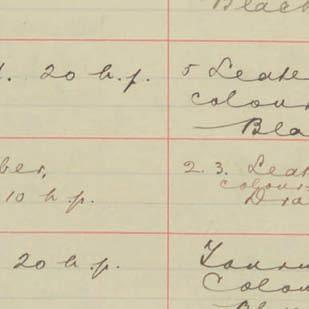 Black
. 20 h.p.
5 Seate
colour
Bla
ber,
10 h.p.
2. 3. Seat
colour
Dra
20 h.p.
Colou